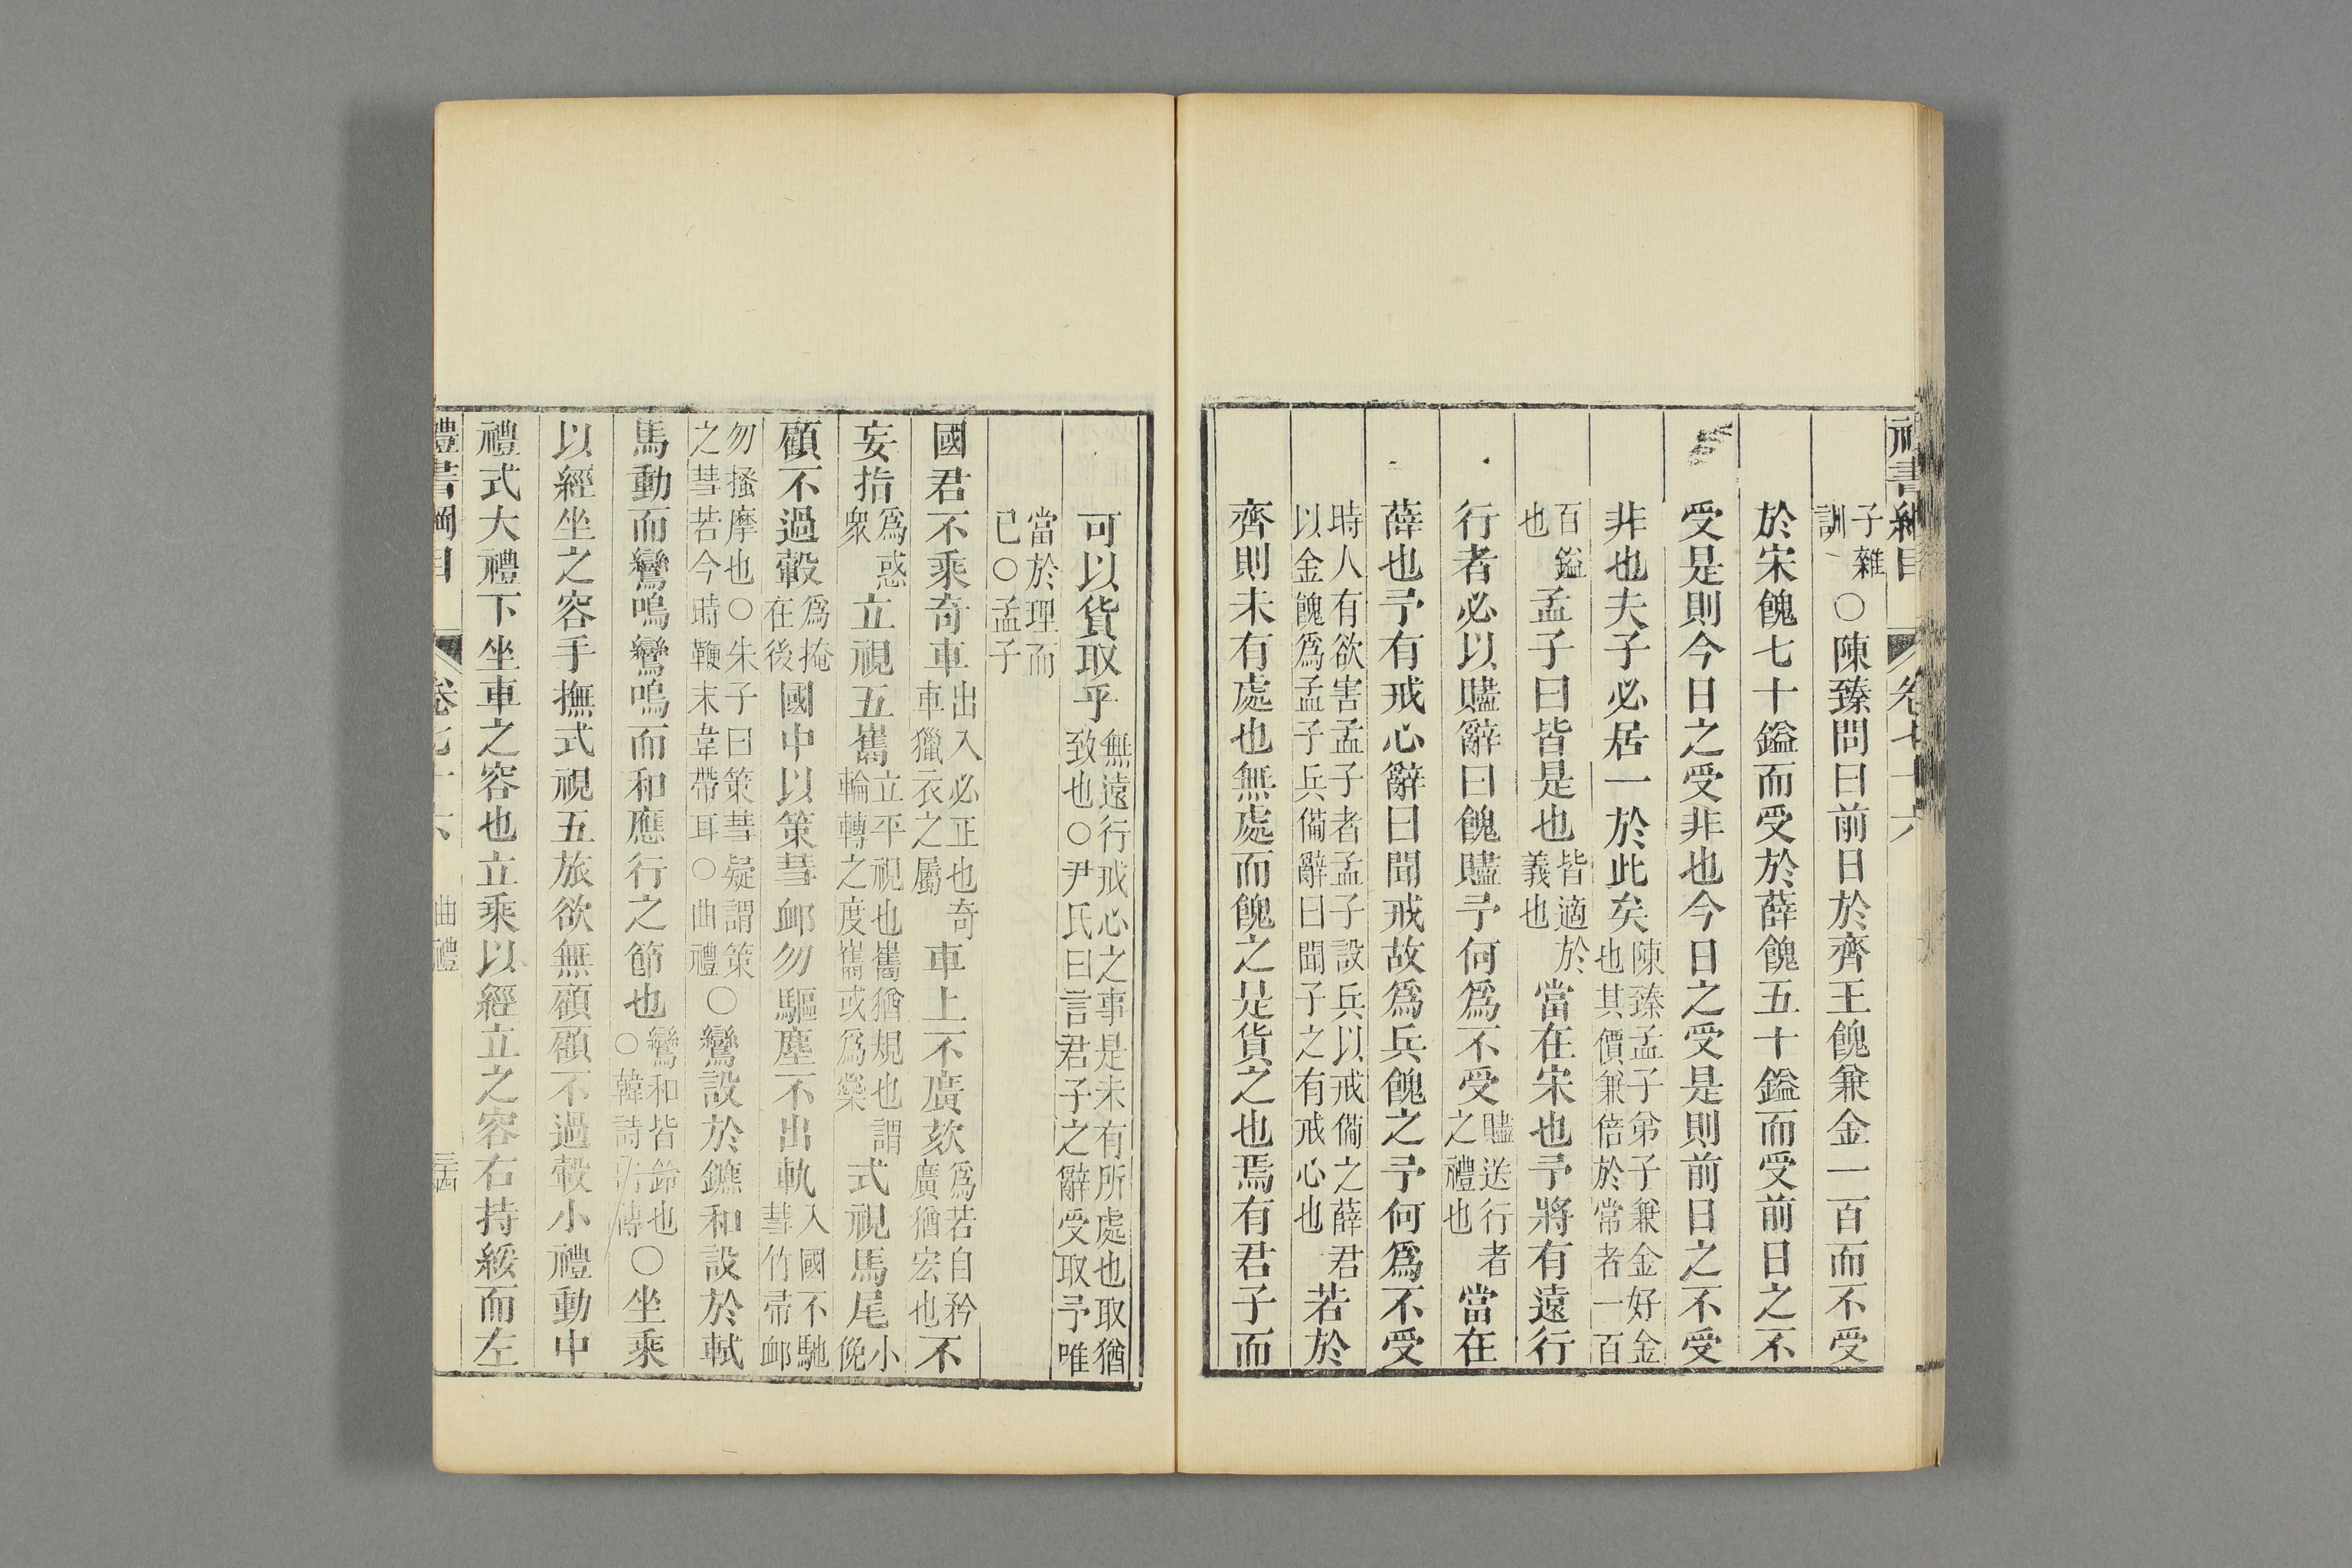 禮書綱目 卷七十六
子雜訓○陳臻問曰前日於齊王餽兼金一百而不受
於宋餽七十鎰而受於薛餽五十鎰而受前日之不
受是則今日之受非也今日之受是則前日之不受
非也夫子必居一於此矣陳臻孟子弟子兼金好金也其價兼倍於常者一百
百鎰也孟子曰皆是也皆適於義也當在宋也予將有遠行
行者必以贐辭曰餽贐予何爲不受贐送行者之禮也當在
薛也予有戒心辭曰聞戒故爲兵餽之予何爲不受
時人有欲害孟子者孟子設兵以戒備之薛君以金餽爲孟子兵備辭曰聞子之有戒心也若於
齊則未有處也無處而餽之是貨之也焉有君子而
可以貨取乎無遠行戒心之事是未有所處也取猶致也○尹氏曰言君子之辭受取予唯
當於理而已○孟子
國君不乘奇車出入必正也奇車獵衣之屬車上不廣欬爲若自矜廣猶宏也不
妄指爲惑衆立視五巂立平視也巂猶規也謂輪轉之度巂或爲繠式視馬尾小俛
顧不過轂爲掩在後國中以策彗卹勿驅塵不出軌入國不馳彗竹帚卹
勿搔摩也○朱子曰策彗疑謂策之彗若今時鞭末韋帶耳○曲禮○鸞設於鑣和設於軾
馬動而鸞鳴鸞鳴而和應行之節也鸞和皆鈴也○韓詩外傳○坐乘
以經坐之容手撫式視五旅欲無顧顧不過轂小禮動中
禮式大禮下坐車之容也立乘以經立之容右持綏而左
禮書綱目 卷七十六 曲禮 三十四